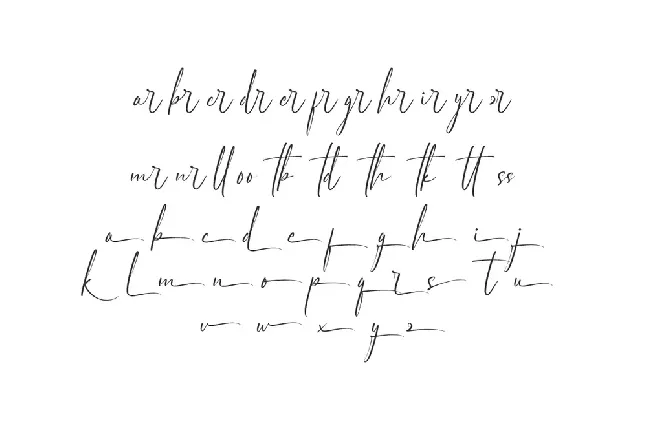 ar br cr dr er fr gr hr ir yr or
mr nr ll oo tb td th tk tt ss
a b c d e f g h i j
k l m n o p q r s t u
v w x y z